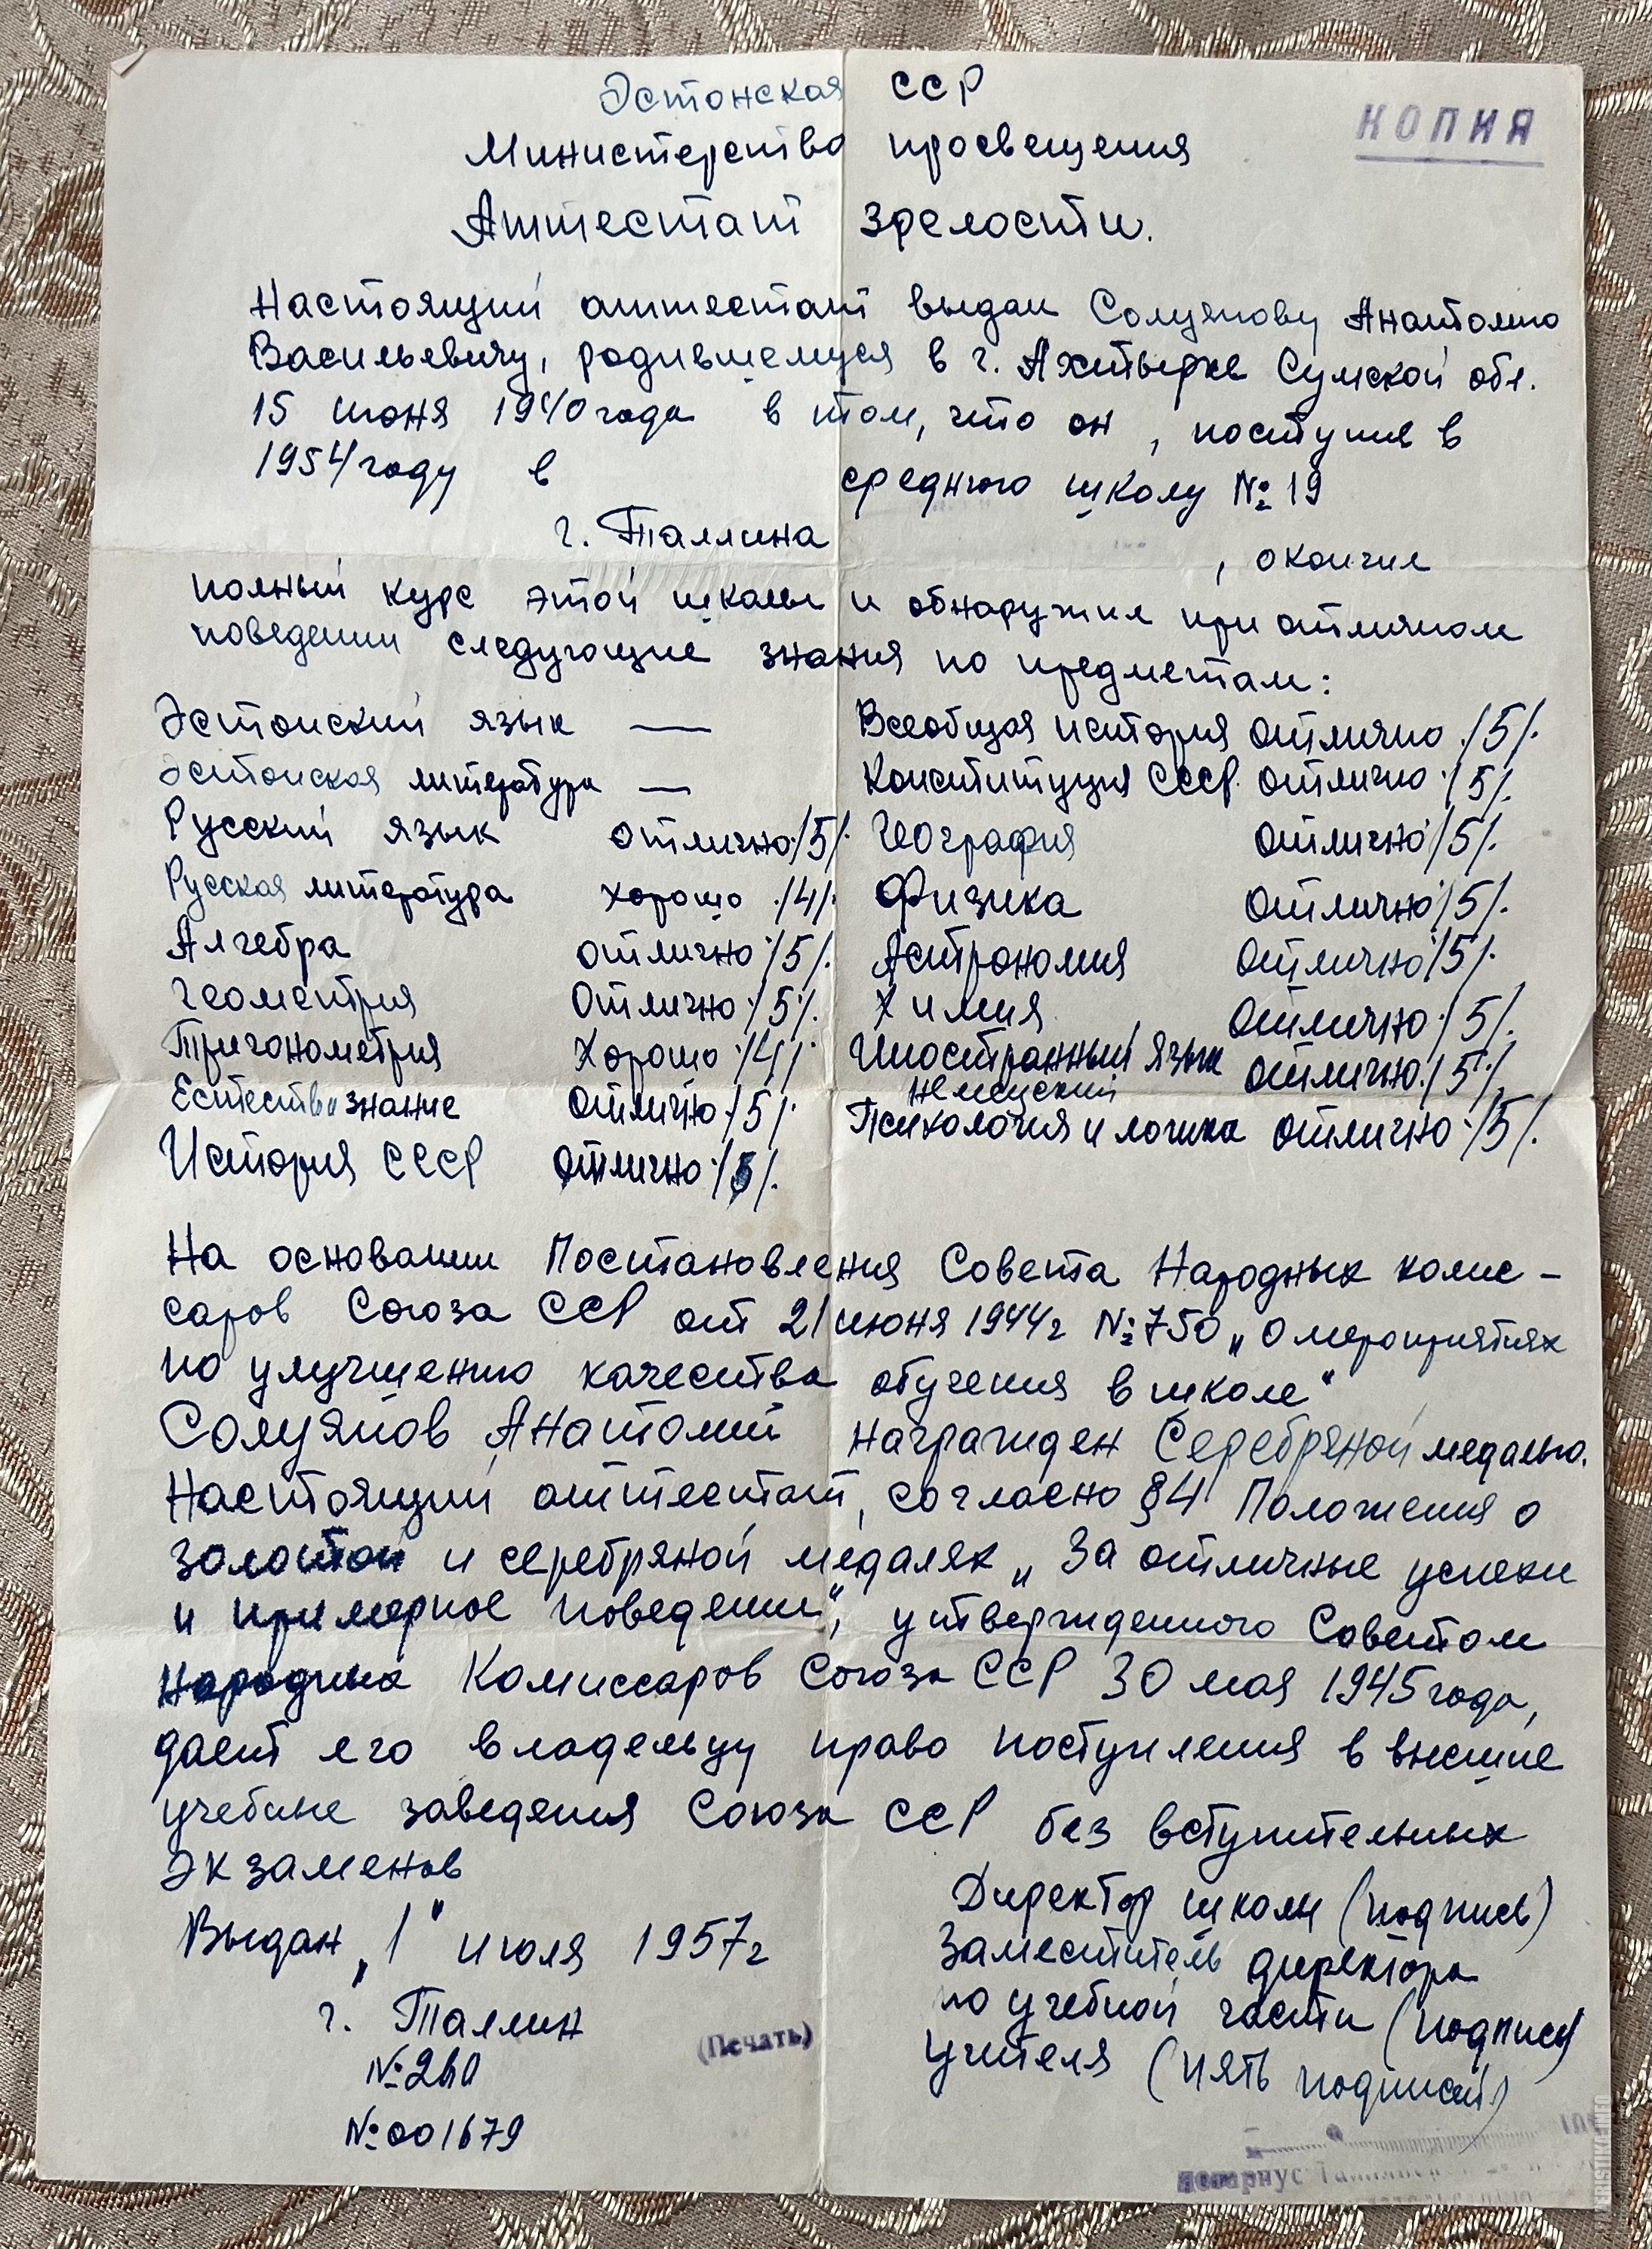 Эстонская ССР
КОПИЯ
Министерство просвещения
Аттестат зрелости.
Настоящий аттестат выдан Солуянову Анатолию
Васильевичу, родившемуся в г. Ахтырке Сумской обл.
15 июня 1940 года в том, что он, поступив в
1954 году в среднюю школу № 19
г. Таллина
, окончил
полный курс этой школы и обнаружил при отличном
поведении следующие знания по предметам:
Эстонский язык —
Эстонская литература —
Русский язык отлично ./5/.
Русская литература хорошо ./4/.
Алгебра отлично ./5/.
Геометрия отлично ./5/.
Тригонометрия хорошо ./4/.
Естествознание отлично ./5/.
История СССР отлично ./5/.
Всеобщая история отлично ./5/.
Конституция СССР. отлично ./5/.
География отлично ./5/.
Физика отлично ./5/.
Астрономия отлично ./5/.
Химия отлично ./5/.
Иностранный язык отлично ./5/.
немецкий
Психология и логика отлично ./5/.
На основании Постановления Совета Народных комис-
саров Союза ССР от 21 июня 1944 г № 750 „О мероприятиях
по улучшению качества обучения в школе"
Солуянов Анатолий награжден Серебряной медалью.
Настоящий аттестат, согласно §4 Положения о
золотой и серебряной медалях „За отличные успехи
и примерное поведение", утвержденного Советом
Народных Комиссаров Союза ССР 30 мая 1945 года,
дает его владельцу право поступления в высшие
учебные заведения Союза ССР без вступительных
экзаменов
Выдан „1" июля 1957 г
г. Таллин
№
№ 001679
(Печать)
Директор школы (подпись)
Заместитель директора
по учебной части (подпись)
учителя (пять подписей)
нотариус